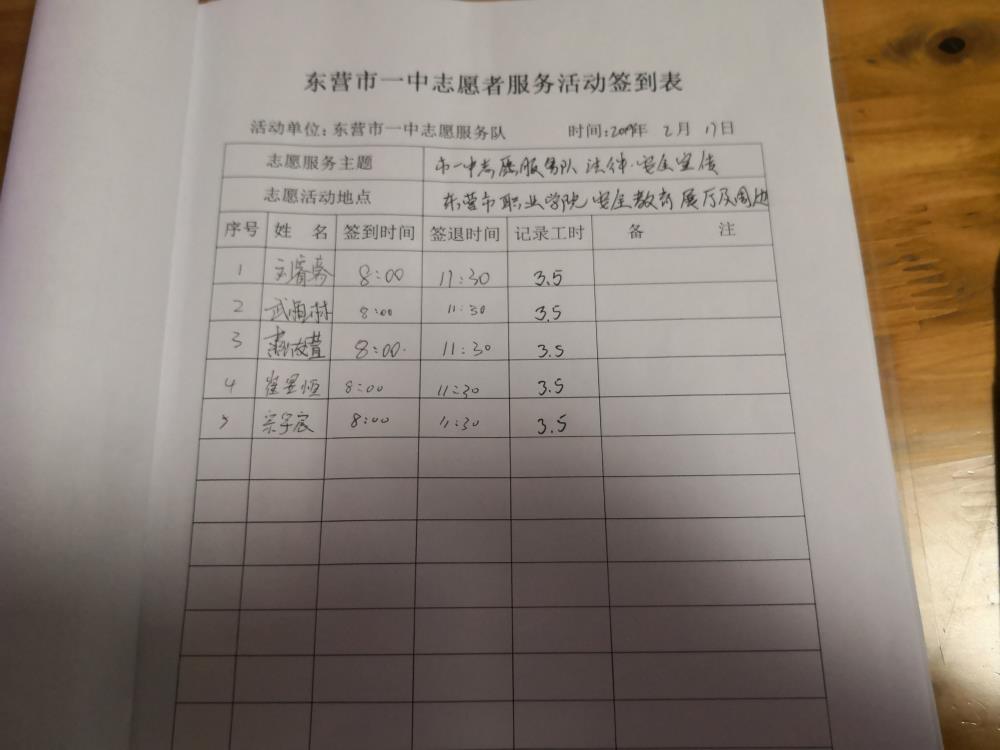 东营市一中志愿者服务活动签到表
活动单位：东营市一中志愿服务队 时间：2019年 2月 17日
志愿服务主题 市一中志愿服务队 法律·安全宣传
志愿活动地点 东营市职业学院 安全教育展厅及周边
序号 姓 名 签到时间 签退时间 记录工时 备 注
1 8:00 11:30 3.5
2 武 林 8:00 11:30 3.5
3 8:00 11:30 3.5
4 崔 恒 8:00 11:30 3.5
5 宗子宸 8:00 11:30 3.5